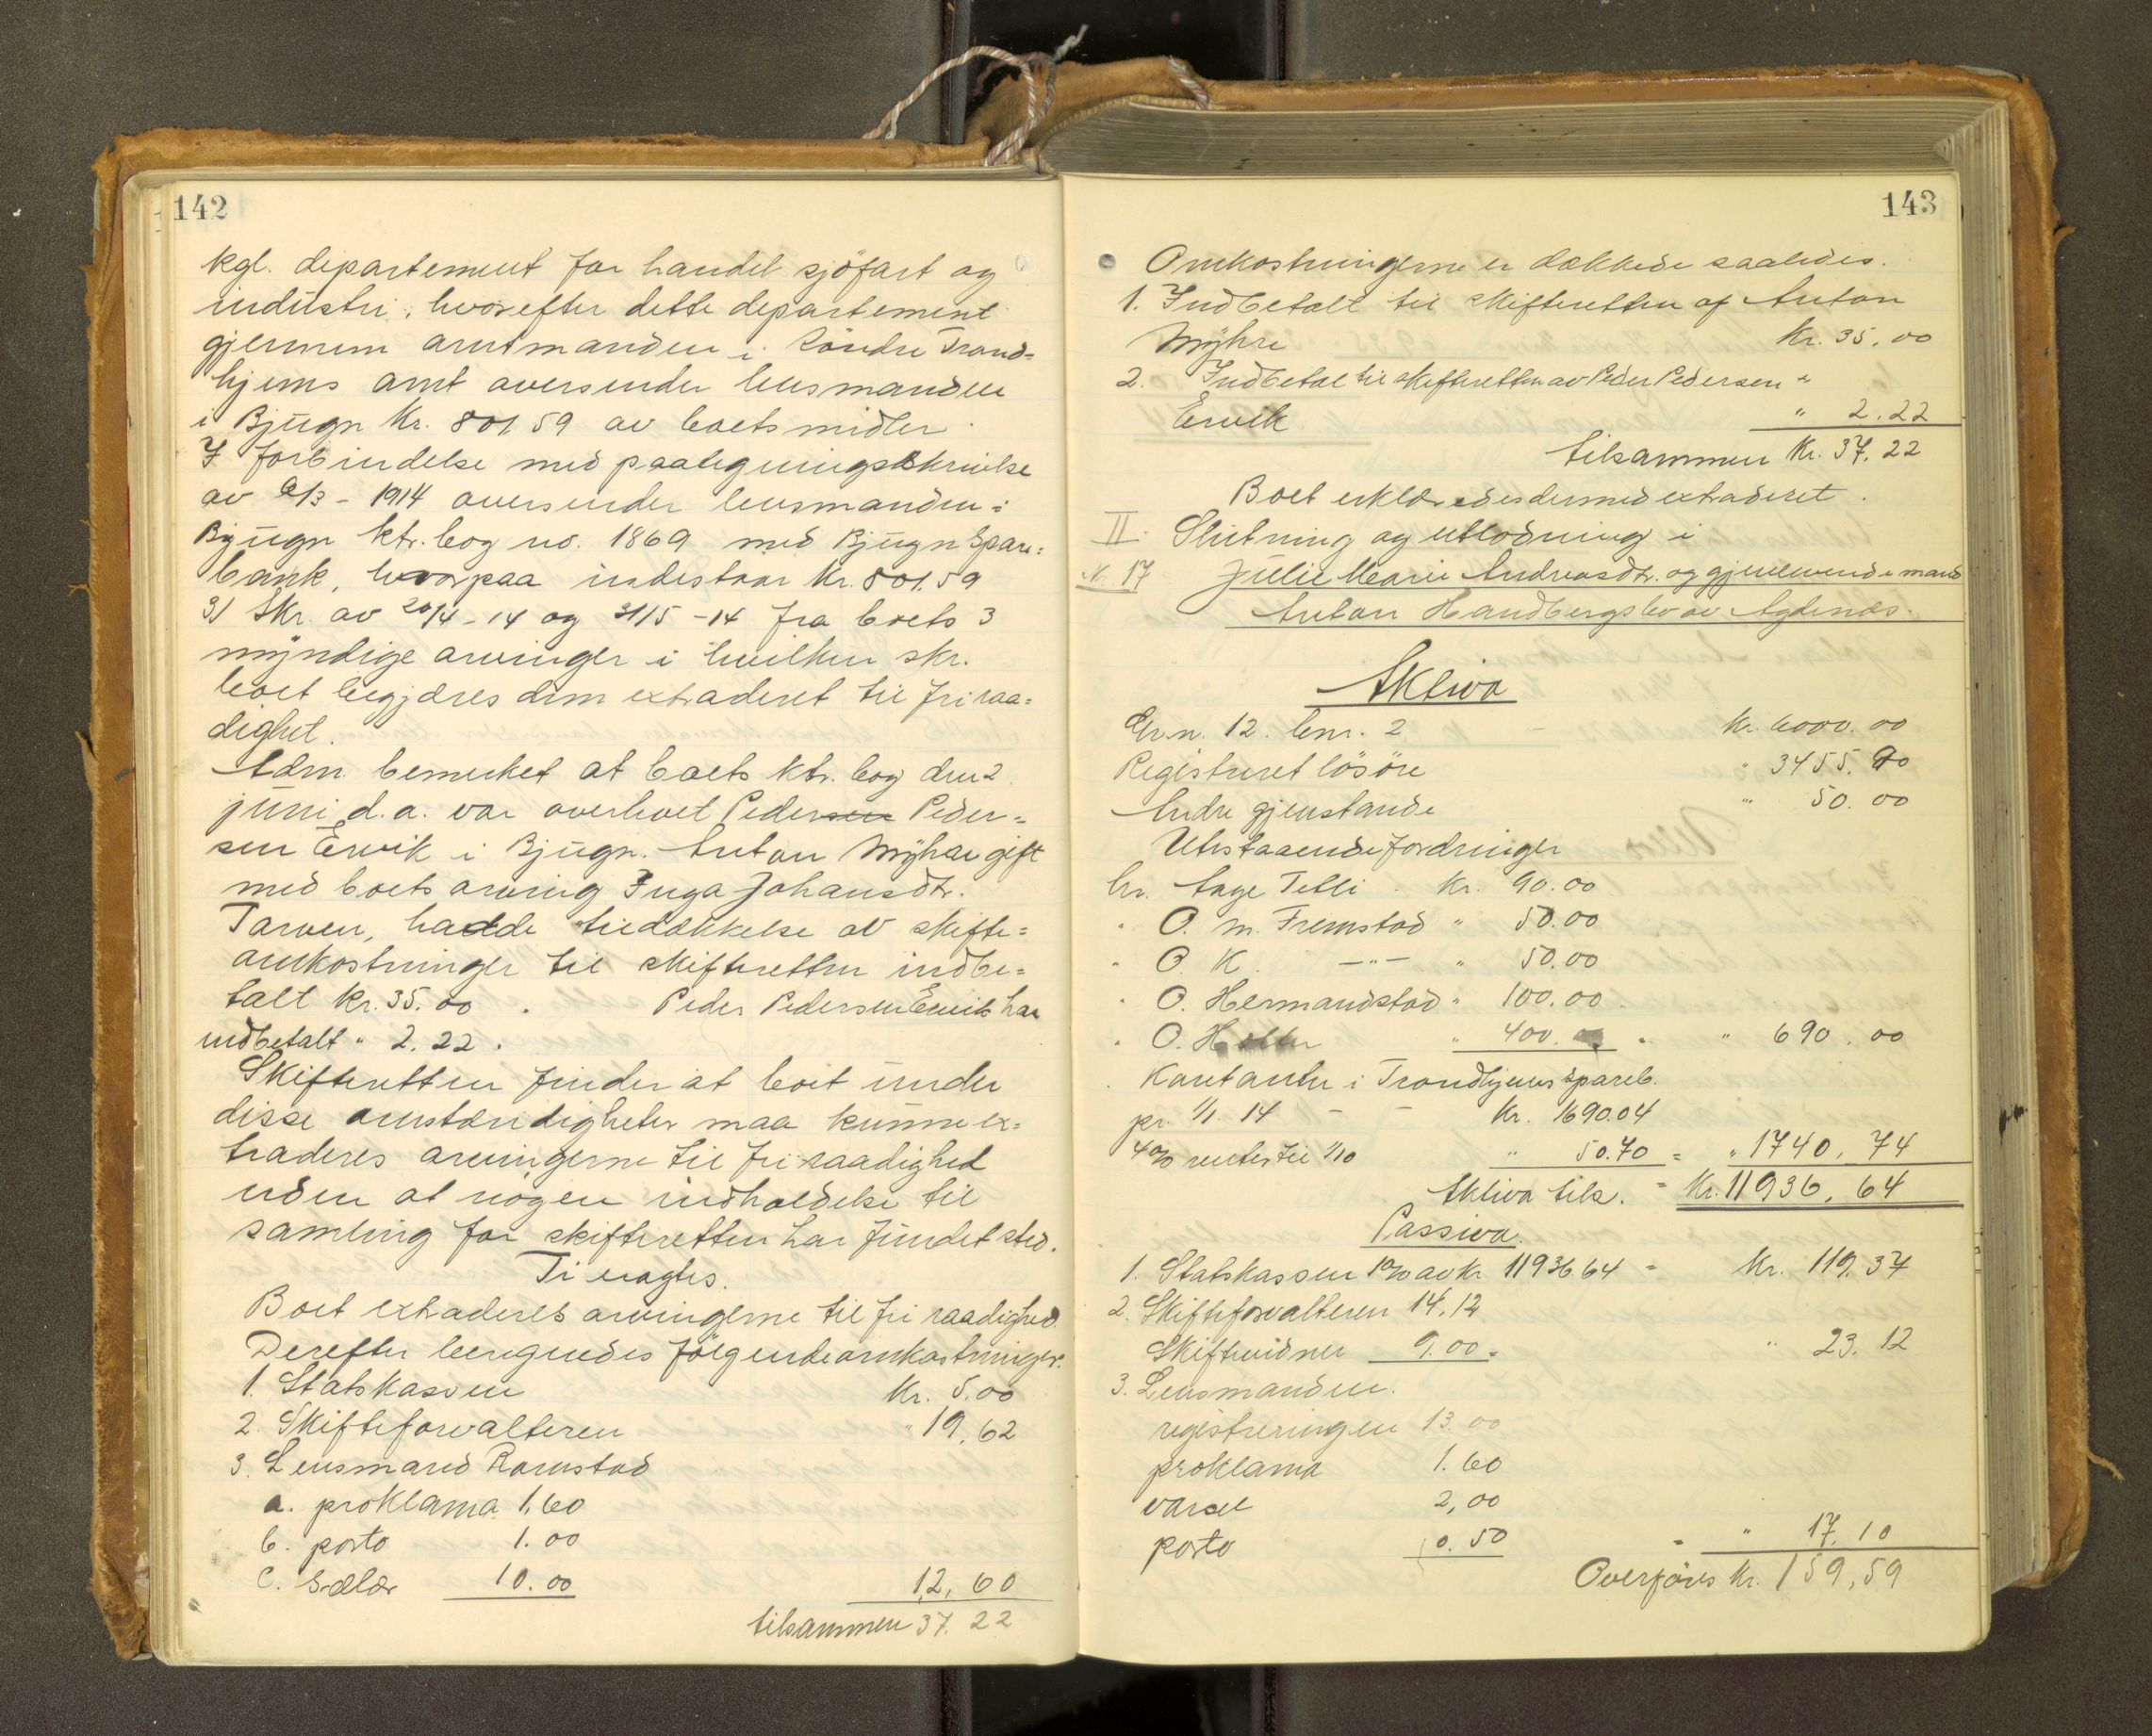 142
kgl. departement for handel sjöfart og
industri, hvorefter dette departement
gjennem amtmanden i Söndre Trond=
hjems amt oversender lensmanden
i Bjugn Kr. 801,59 av boets midler.
I forbindelse med paategningsskrivelse
av 9/3 - 1914 oversender lensmanden i
Bjugn ktr. bog no. 1869 med Bjugn Spare=
bank, hvorpaa indestaar Kr. 801.59
3/ Skr. av 20/4 - 14 og 31/5 - 14 fra boets 3
myndige arvinger i hvilken skr.
boet begjæres dem extraderet til fri raa=
dighet.
Adm. bemerket at boets ktr. bog den 2
juni d.a. var overlevet Pedersen Peder=
sen Ervik i Bjugn. Anton Myhre gift
med boets arving Inga Johansdtr.
Tarven, hadde til dækkelse av skifte=
omkostninger til skifteretten indbe=
talt kr. 35.00. Peder Pedersen Ervik har
indbetalt " 2.22.
Skifteretten finder at boet under
disse omstændigheter maa kunne ex=
traderes arvingerne til fri raadighed
uden at nogen indkaldelse til
samling for skifteretten har fundet sted.
Ti eragtes.
Boet extraderes arvingerne til fri raadighed.
Derefter beregnedes følgende omkostninger.
1. Statskassen Kr. 5.00
2. Skifteforvalteren " 19.62
3. Lensmand Ramstad
a. proklama 1,60
b. porto 1.00
c. salær 10.00 12,60
tilsammen 37.22
143
Omkostningerne er dækkede saaledes.
1. Indbetalt til skifteretten af Anton
Myhre Kr. 35,00
2. Indbetal til skifteretten av Peder Pedersen
Ervik " 2.22
tilsammen Kr. 37.22
Boet erklæredes dermed extraderet.
II Slutning og utlodning i
Nr. 17 Julie Marie Andreasdtr. og gjenlevende mand
Anton Handbergslev av Agdenæs.
Aktiva
Grn. 12. bnr. 2 Kr. 6000.00
Registreret lösöre " 3455.90
Andre gjenstande " 50.00
Utestaaende fordringer
hr. Aage Telli Kr. 90.00
" O. M. Fremstad " 50.00
" O. K. —"— " 50.00
" O. Hermandstad " 100.00
" O. Holter " 400. " 690.00
Kontanter i Trondhjems spareb.
pr. 1/1. 14 - - Kr. 1690.04
4% renter til 1/10 " 50.70 = " 1740,74
Aktiva tils. = Kr. 11936,64
Passiva.
1. Statskassen 1% av kr 11936 64 = Kr. 119.37
2. Skifteforvalteren 14.12
Skiftevidner 9.00 = " 23.12
3. Lensmanden.
registreringen 13.00
proklama 1.60
varsel 2,00
porto 0.50 = " 17.10
Overføres Kr. 159,59